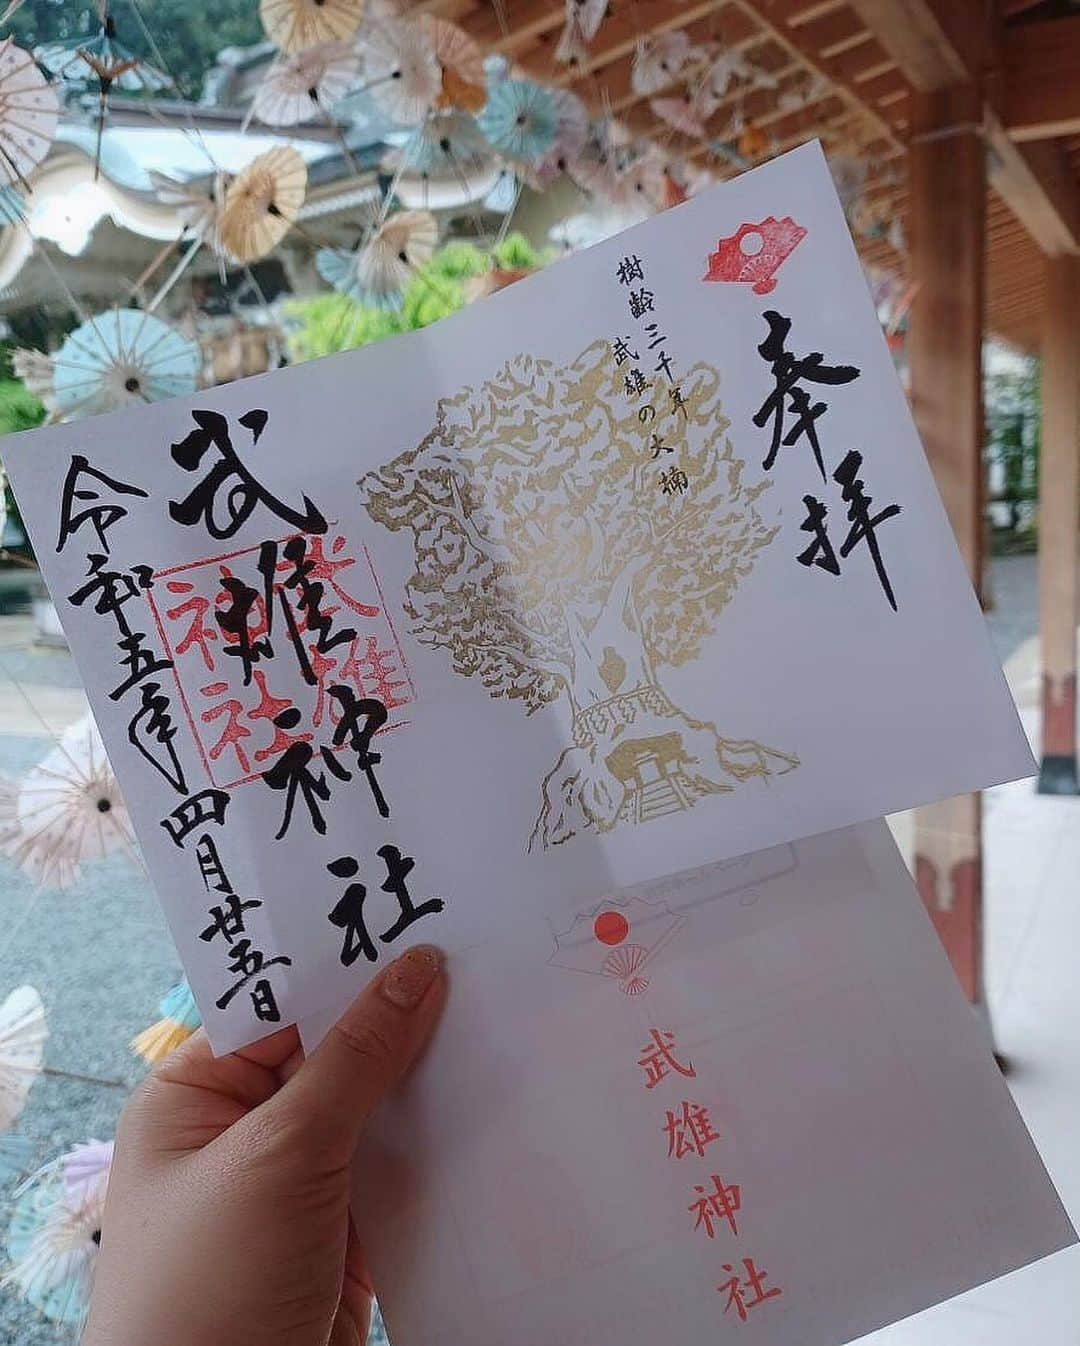 奉拝
樹齢三千年
武雄の大楠
武雄神社
武雄
神社
令和五年四月廿五日
武雄神社